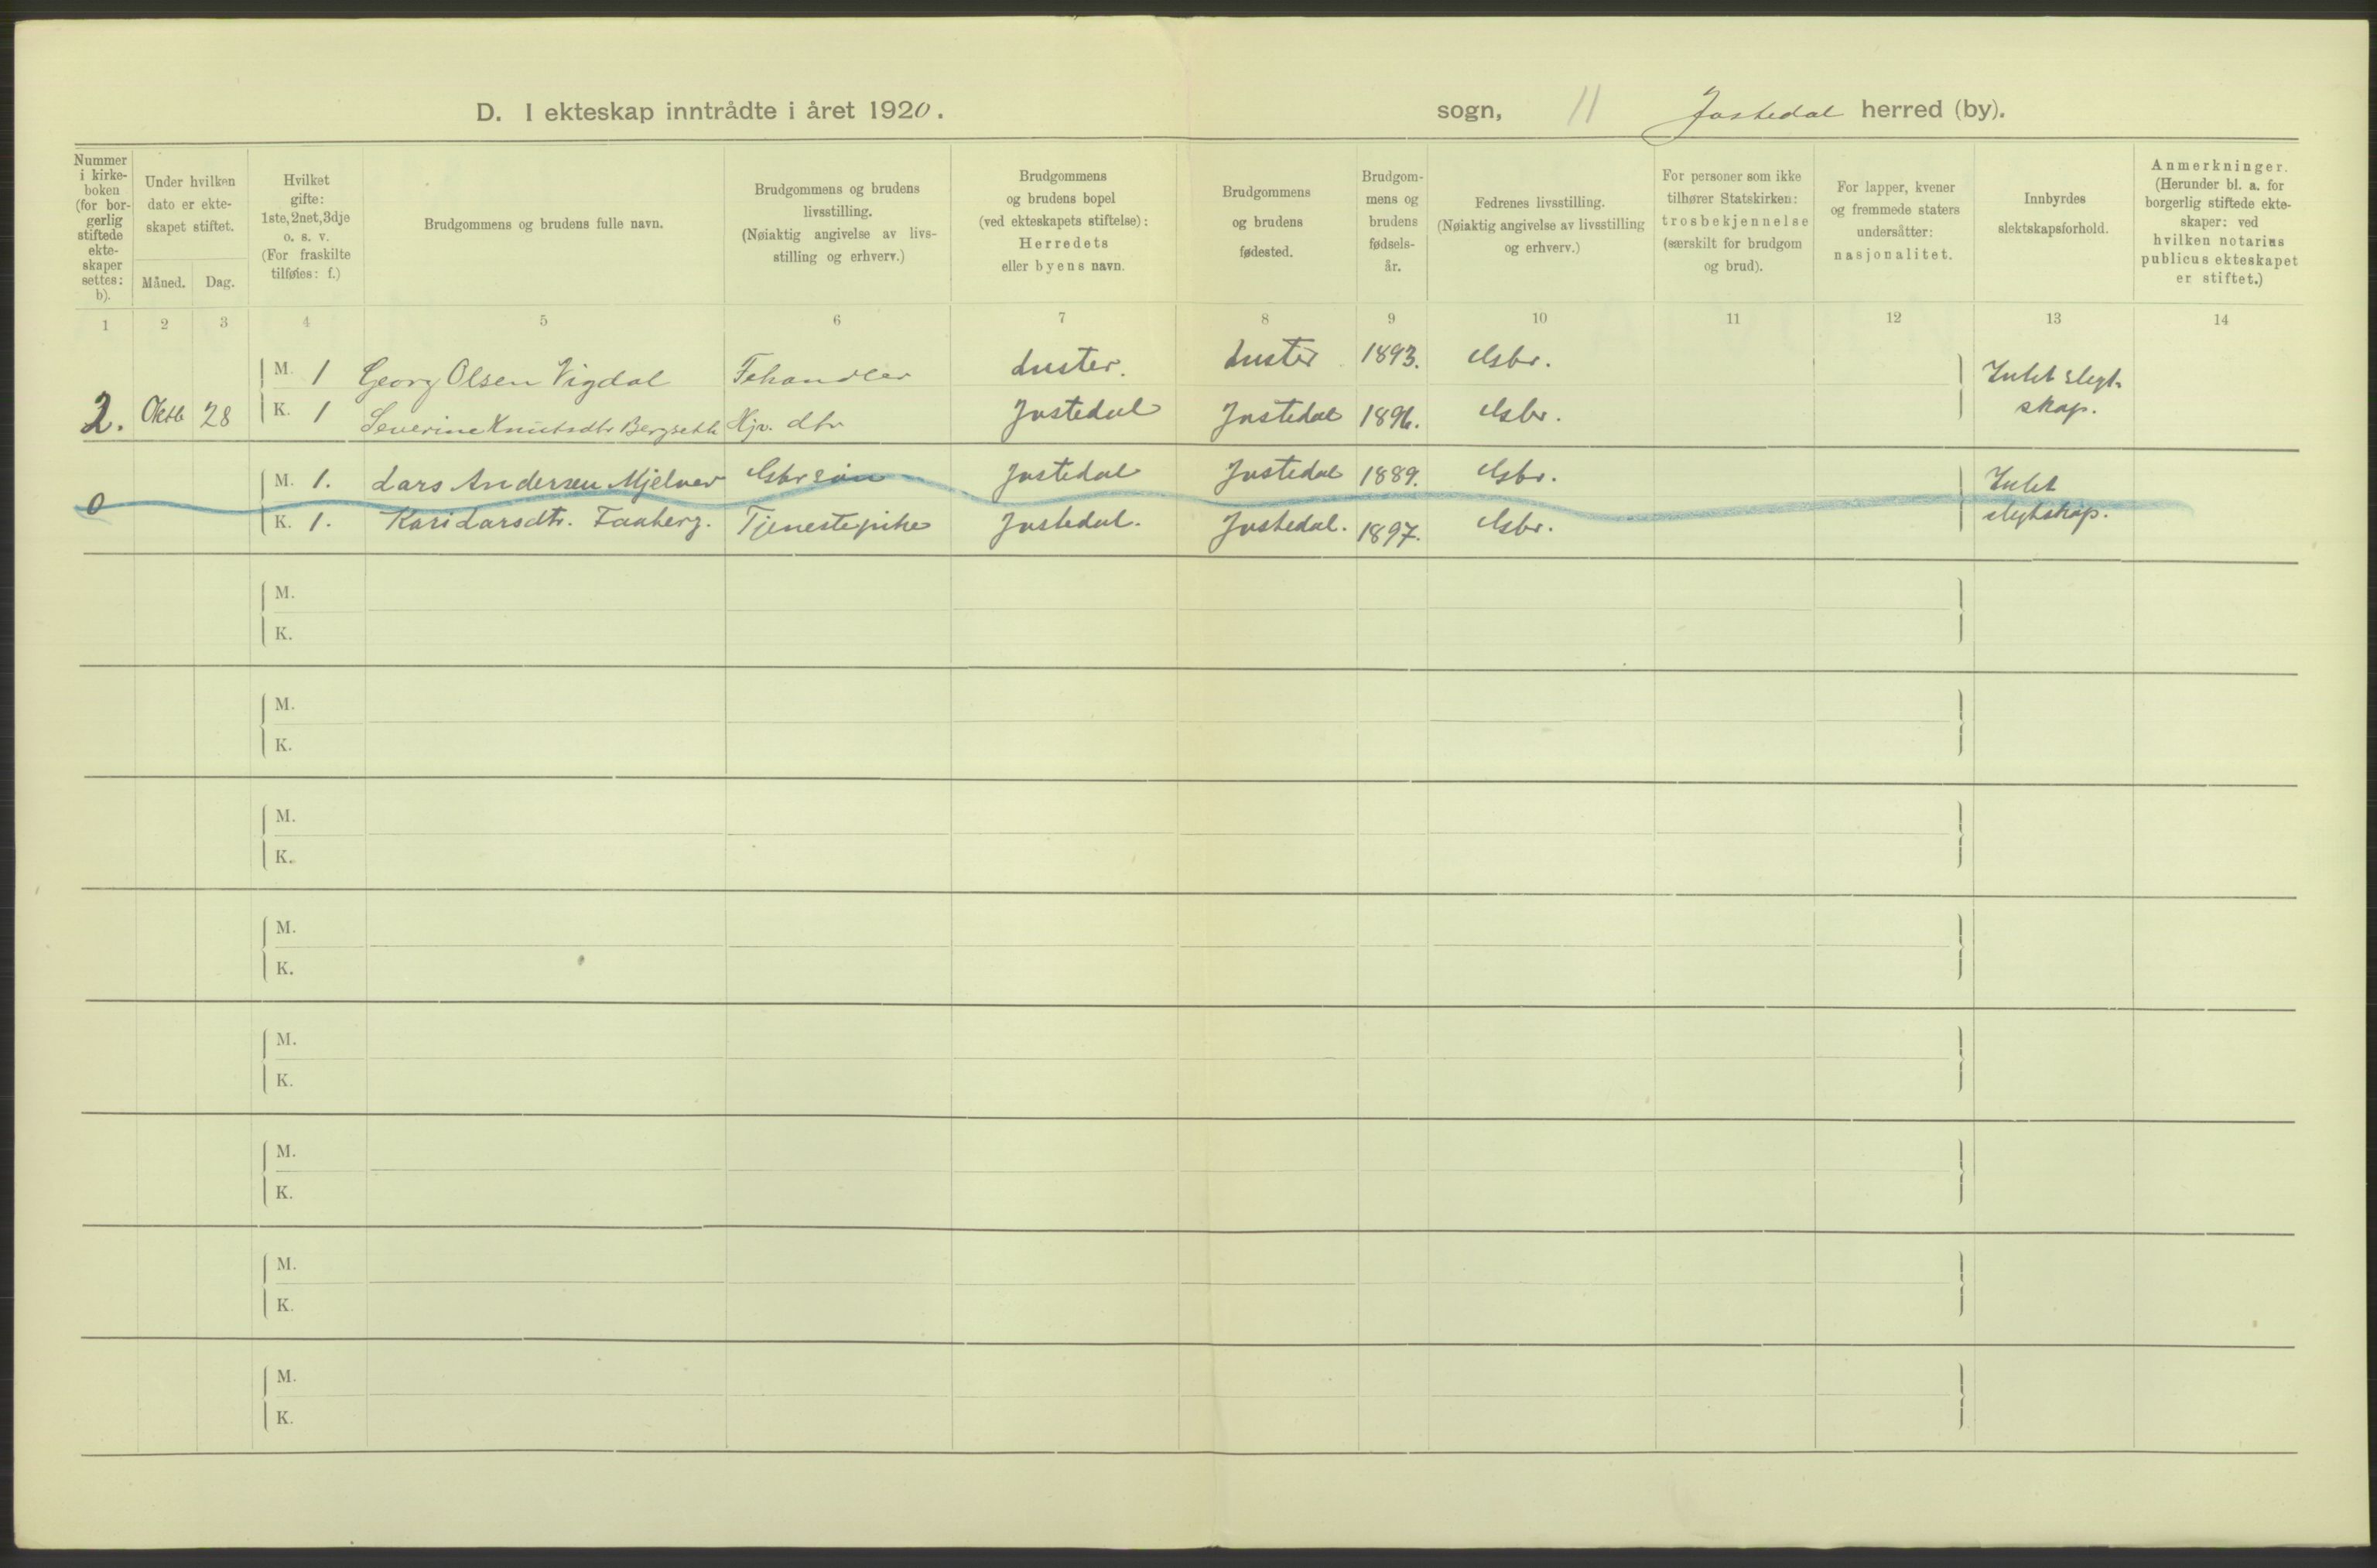 D. I ekteskap inntrådte i året 1920.
sogn, 11 Jostedal herred (by).
Nummer i kirke-boken (for bor-gerlig stiftede ekte-skaper settes: b).
Under hvilken dato er ekte-skapet stiftet.
Måned. Dag.
Hvilket gifte: 1ste, 2net, 3dje o. s. v. (For fraskilte tilføies: f.)
Brudgommens og brudens fulle navn.
Brudgommens og brudens livsstilling. (Nøiaktig angivelse av livs-stilling og erhverv.)
Brudgommens og brudens bopel (ved ekteskapets stiftelse): Herredets eller byens navn.
Brudgommens og brudens fødested.
Brudgom-mens og brudens fødsels-år.
Fedrenes livsstilling. (Nøiaktig angivelse av livsstilling og erhverv.)
For personer som ikke tilhører Statskirken: trosbekjennelse (særskilt for brudgom og brud).
For lapper, kvener og fremmede staters undersåtter: nasjonalitet.
Innbyrdes slektskapsforhold.
Anmerkninger. (Herunder bl. a. for borgerlig stiftede ekte-skaper: ved hvilken notarius publicus ekteskapet er stiftet.)
1 2 3 4 5 6 7 8 9 10 11 12 13 14
M. 1 Georg Olsen Vigdal Fehandler Luster. Luster 1893. Gsbr. Intet slegt-
2. Oktb 28 K. 1 Severine Knutsdtr Bergseth Hjv. dtr Jostedal Jostedal 1896. Gsbr. skap.
M. 1. Lars Andersen Mjelver Gsbr søn Jostedal Jostedal 1889. Gsbr. Intet
0 K. 1. Kari Larsdtr. Faaberg. Tjenestepike Jostedal. Jostedal. 1897. Gsbr. slegtskap.
M.
K.
M.
K.
M.
K.
M.
K.
M.
K.
M.
K.
M.
K.
M.
K.